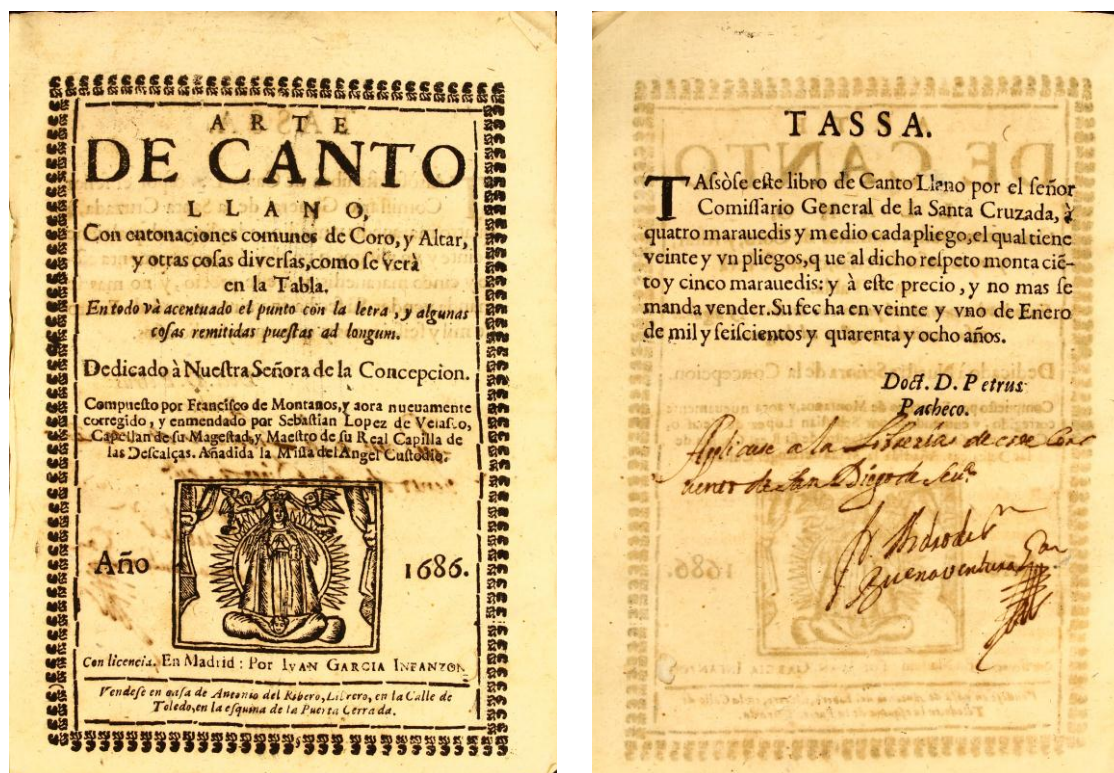 ARTE
DE CANTO
LLANO,
Con entonaciones comunes de Coro, y Altar,
y otras cosas diversas,como se verà
en la Tabla.
En todo và acentuado el punto con la letra, y algunas
cosas remitidas puestas ad longum.
Dedicado à Nuestra Señora de la Concepcion.
Compuesto por Francisco de Montanos,y aora nueuamente
corregido, y enmendado por Sebastian Lopez de Velasco,
Capellan de su Magestad,y Maestro de su Real Capilla de
las Descalças. Añadida la Missa del Angel Custodio.
Año 1686.
Con licencia. En Madrid: Por IVAN GARCIA INFANZON
Vendese en casa de Antonio del Ribero, Librero, en la Calle de
Toledo,en la esquina de la Puerta Cerrada.
TASSA.
TAssòse este libro de Canto Llano por el señor
Comissario General de la Santa Cruzada, à
quatro marauedis y medio cada pliego,el qual tiene
veinte y vn pliegos,q ue al dicho respeto monta ciē-
to y cinco marauedis: y à este precio, y no mas se
manda vender.Su fec ha en veinte y vno de Enero
de mil y seiscientos y quarenta y ocho años.
Doct. D. Petrus
Pacheco.
Aplicase a la Libreria de este Con
uento de San Diego de
Buenaventura